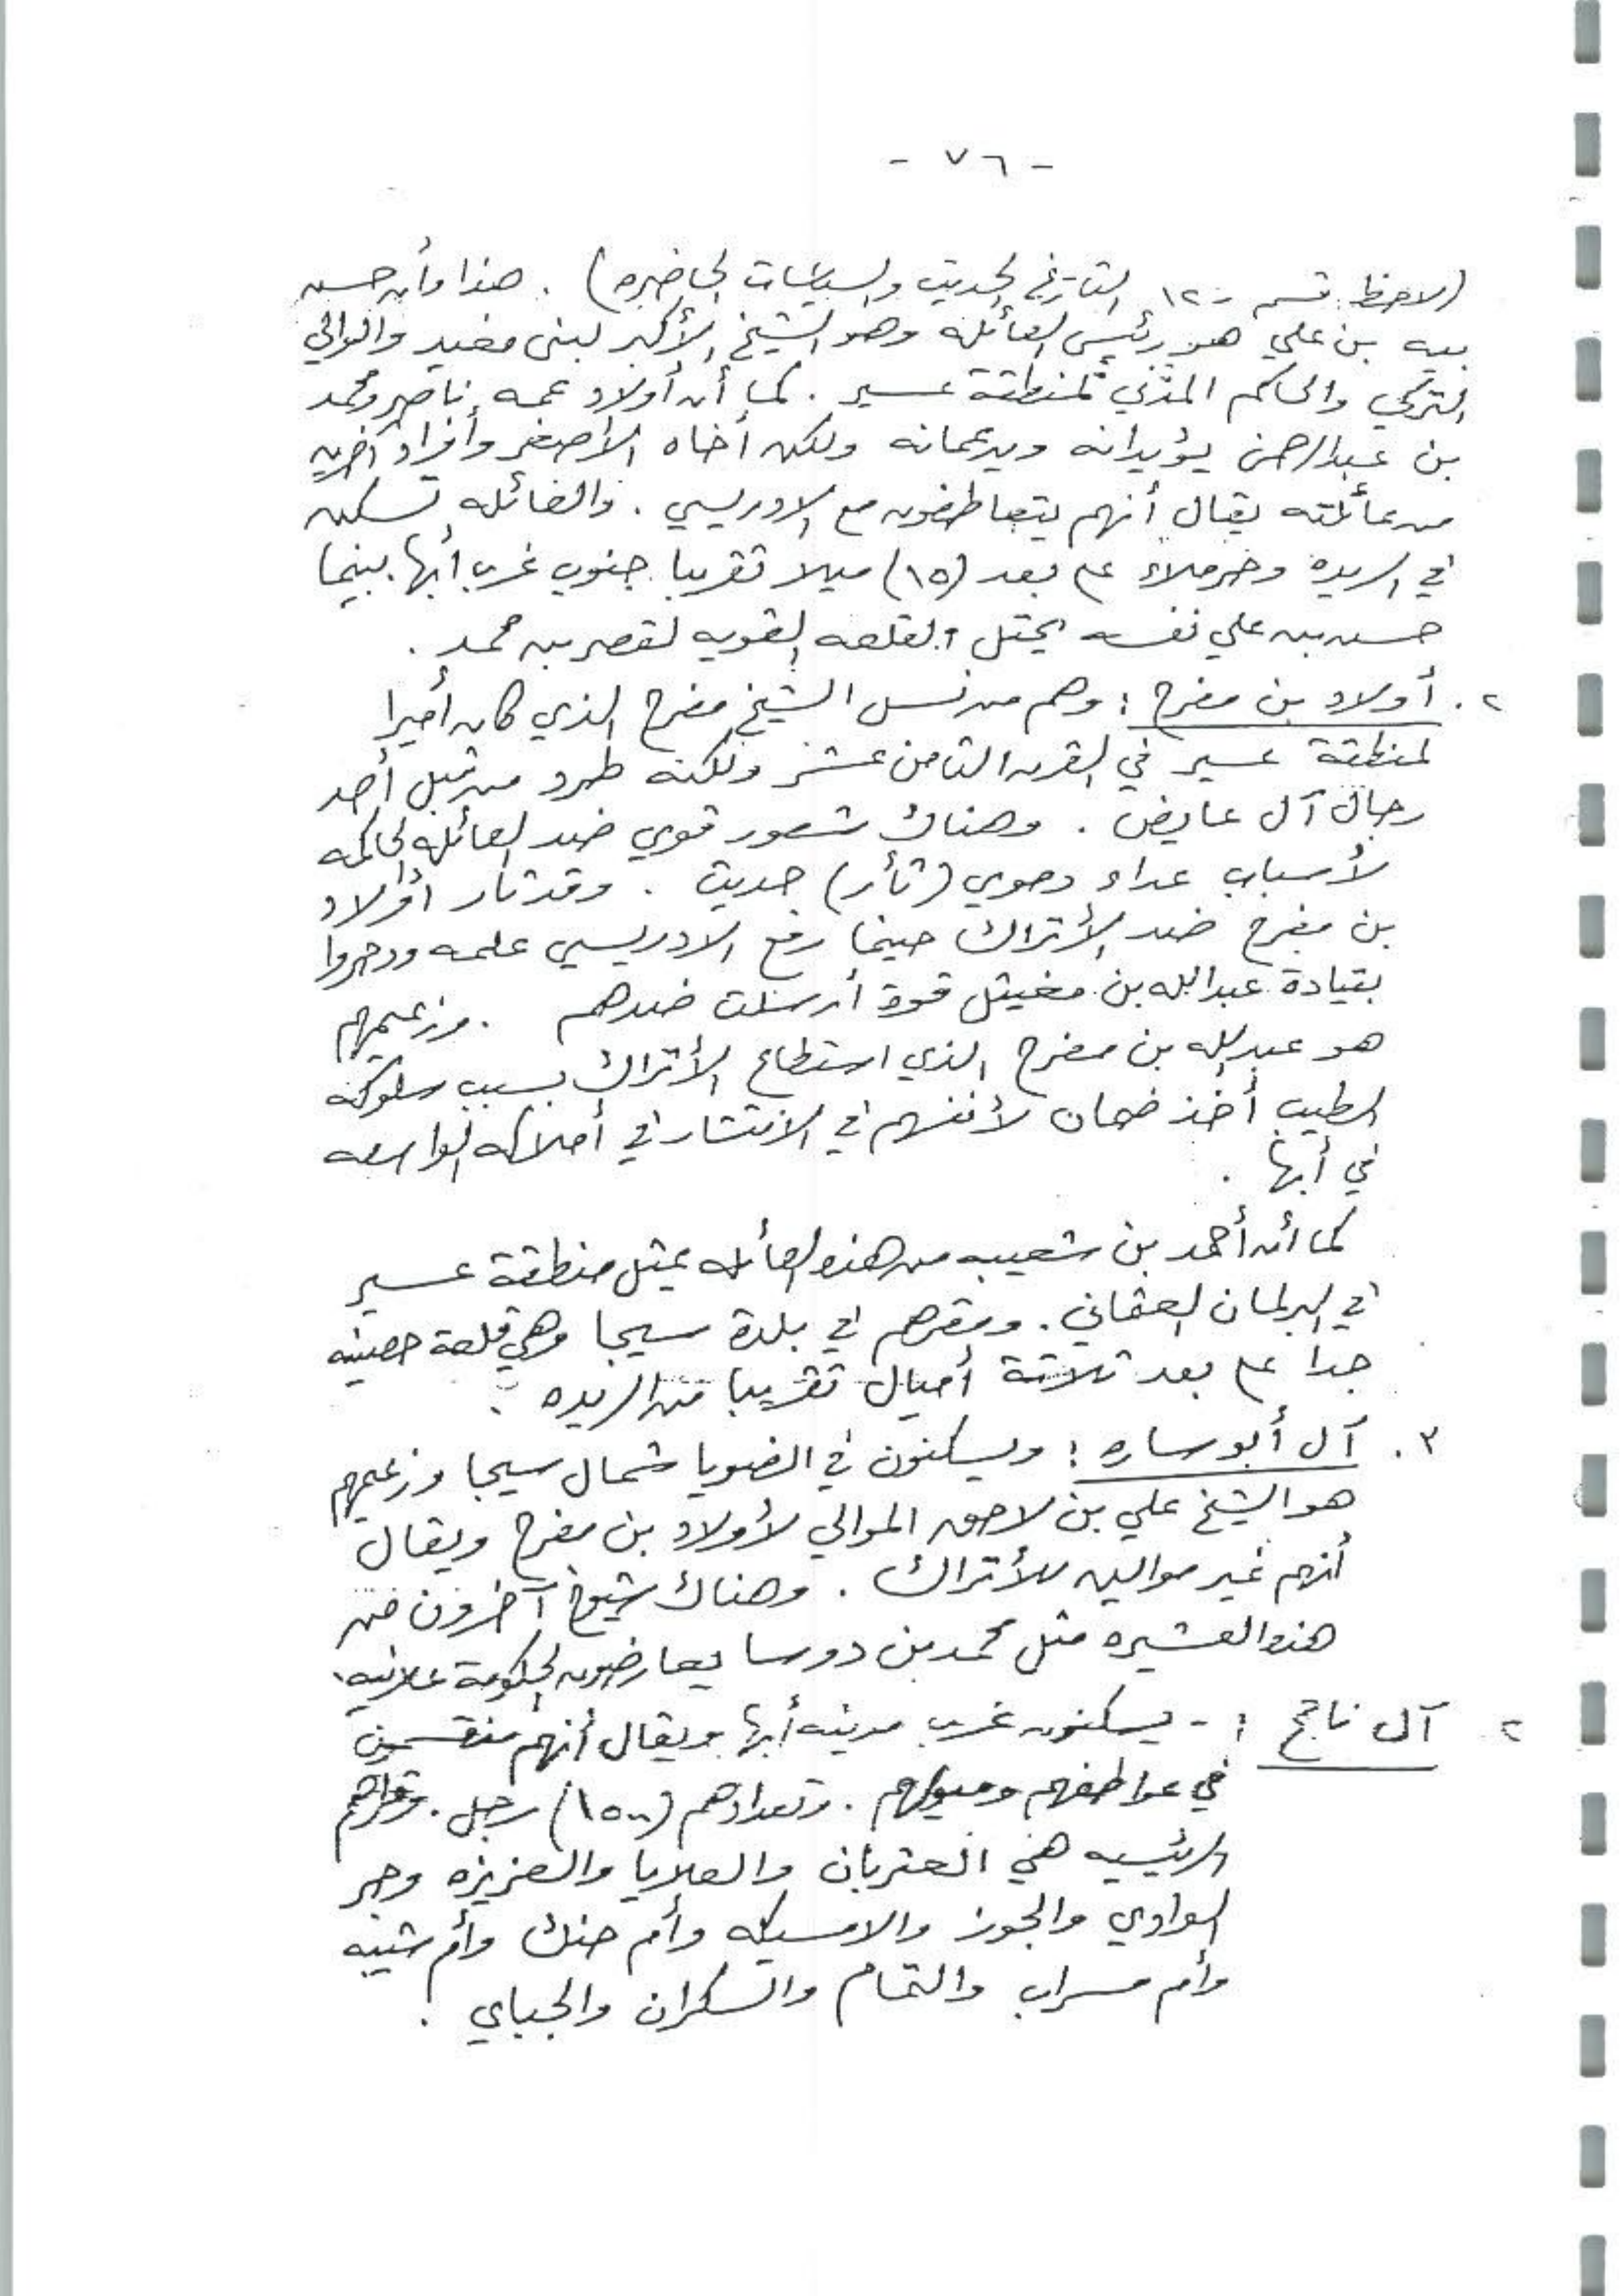 - ٧٦ -
(لاحظ قسم -١٢ التاريخ الحديث والسياسات الحاضره) . هذا وأن حسن
بن علي هو رئيس العائله وهو الشيخ الأكبر لبني مغيد والوالي
التركي والحاكم المدني لمنطقة عسير . كما أن أولاد عمه ناصر ومحمد
بن عبدالرحمن يؤيدانه ويدعمانه ولكن أخاه الأصغر وأفراد آخرين
من عائلته يقال أنهم يتعاطفون مع الادريسي . والعائله تسكن
في الريده وحرملاء على بعد (١٥) ميلا تقريبا جنوب غرب أبها بينما
حسن بن علي نفسه يحتل القلعه القويه لقصر بن محمد .
٢. أولاد بن مفرح : وهم من نسل الشيخ مفرح الذي كان أميرا
لمنطقة عسير في القرن الثامن عشر ولكنه طرد من قبل أحد
رجال آل عايض . وهناك شعور قوي ضد العائله الحاكمه
لأسباب عداء دموي (ثأر) حديث . وقد ثار أولاد
بن مفرح ضد الأتراك حينما رفع الادريسي علمه ودحروا
بقيادة عبدالله بن مغيثل قوة أرسلت ضدهم . وزعيمهم
هو عبدالله بن مفرح الذي استطاع الأتراك بسبب سلوكه
الطيب أخذ ضمان لأنفسهم في الانتشار في أملاكه الواسعه
في أبها .
كما أن أحمد بن شعيبه من هذه العائله يمثل منطقة عسير
في البرلمان العثماني . ومقرهم في بلدة سيجا وهي قلعة حصينه
جدا على بعد ثلاثة أميال تقريبا من الريده .
٣. آل أبو ساره : ويسكنون في الضويا شمال سيجا وزعيمهم
هو الشيخ علي بن لاحق الموالي لأولاد بن مفرح ويقال
أنهم غير موالين للأتراك . وهناك شيوخ آخرون من
هذه العشيره مثل محمد بن دوسا يعارضون الحكومة علانيه .
٢. آل ناجح : - يسكنون غرب مدينه أبها ويقال أنهم منقسمين
في عواطفهم وميولهم . وتعدادهم (١٥٠٠) رجل . وقراهم
الرئيسيه هي العتربان والعلايا والعزيزه وحجر
الوادي والجوز والامسيكه وأم حنك وأم شبيه
وأم مسراب والتمام والسكران والجباي .